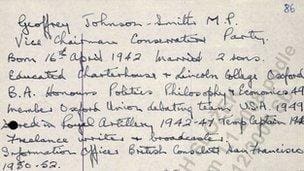 86
Geoffrey Johnson-Smith M.P.
Vice Chairman Conservative Party.
Born 16th April 1942 Married 2 sons.
Educated Charterhouse & Lincoln College Oxford
B.A. Honours Politics Philosophy & Economics 49
member Oxford Union debating team U.S.A. 1949
Served in Royal Artillery 1942-47 Temp Captain 194
Freelance writer & broadcaster
Information Officer British Consulate San Francisco
1950-52.